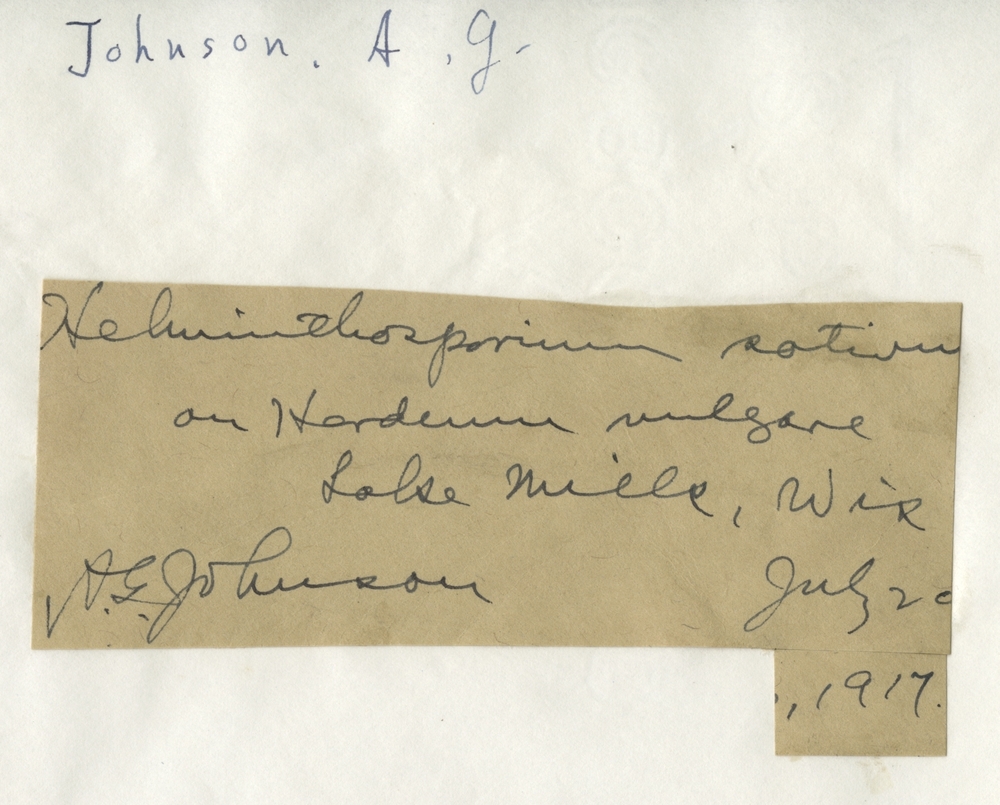 Johnson, A. G.
Helminthosporium sativu
on Hordeum vulgare
Lake Mills, Wis
A.G. Johnson July 20
, 1917.